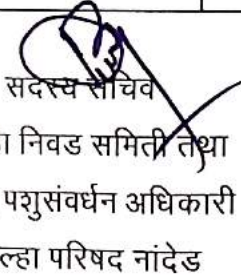 सदस्य सचिव
निवड समिती तथा
पशुसंवर्धन अधिकारी
परिषद नांदेड